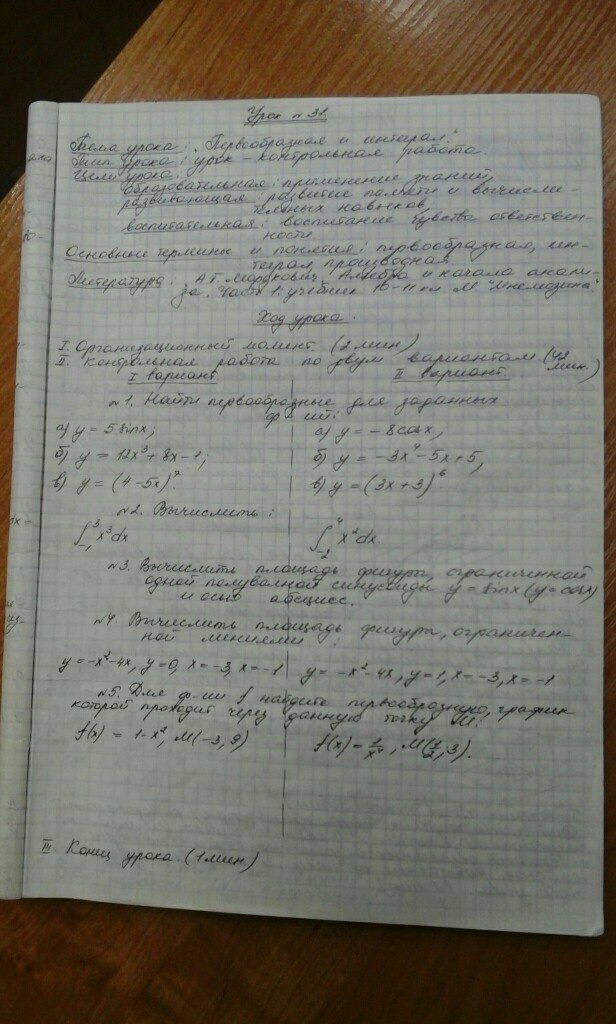 Урок №31.
Тема урока: "Первообразная и интеграл."
Тип урока: урок - контрольная работа.
Цели урока:
Образовательная: применение знаний,
развивающая: развитие памяти и вычисли-
тельных навыков,
воспитательная: воспитание чувства ответствен-
ности.
Основные термины и понятия: первообразная, ин-
теграл, производная
Литература: А.Г. Мордкович, Алгебра и начала анали-
за. Часть 1: учебник 10-11 кл М "Мнемозина"
Ход урока.
I. Организационный момент (2 мин)
II. Контрольная работа по двум вариантам (42 мин.)
I вариант II вариант
№1. Найти первообразные для заданных
ф-ий:
а) y = 5 sinx; а) y = -8cosx,
б) y = 12x³ + 8x - 1; б) y = -3x⁴ - 5x + 5,
в) y = (4-5x)⁷. в) y = (3x+3)⁶
№2. Вычислить:
∫₋₁³ x³dx ∫₋₂⁴ x²dx.
№3. Вычислить площадь фигуры, ограниченной
одной полуволной синусоиды y = sinx (y = cosx)
и осью абсцисс.
№4. Вычислить площадь фигуры, ограничен-
ной линиями:
y = -x²-4x, y=0, x=-3, x=-1 y = -x²-4x, y=1, x=-3, x=-1
№5. Для ф-ии f найдите первообразную, график
которой проходит через данную точку M:
f(x) = 1-x², M(-3, 9) f(x) = , M(1/2, 3).
III Конец урока. (1 мин)